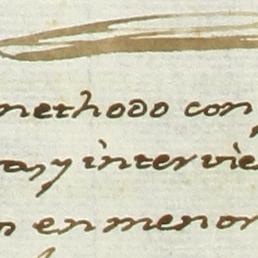 methodo con
tas, y intervie
n en menor